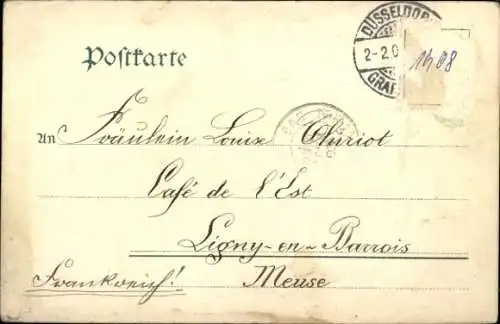 DÜSSELDOR
2-2.0
GRAF
1408
Postkarte
An Fräulein Louise Churiot
Café de l'Est
Ligny-en-Barrois
Frankreich! Meuse